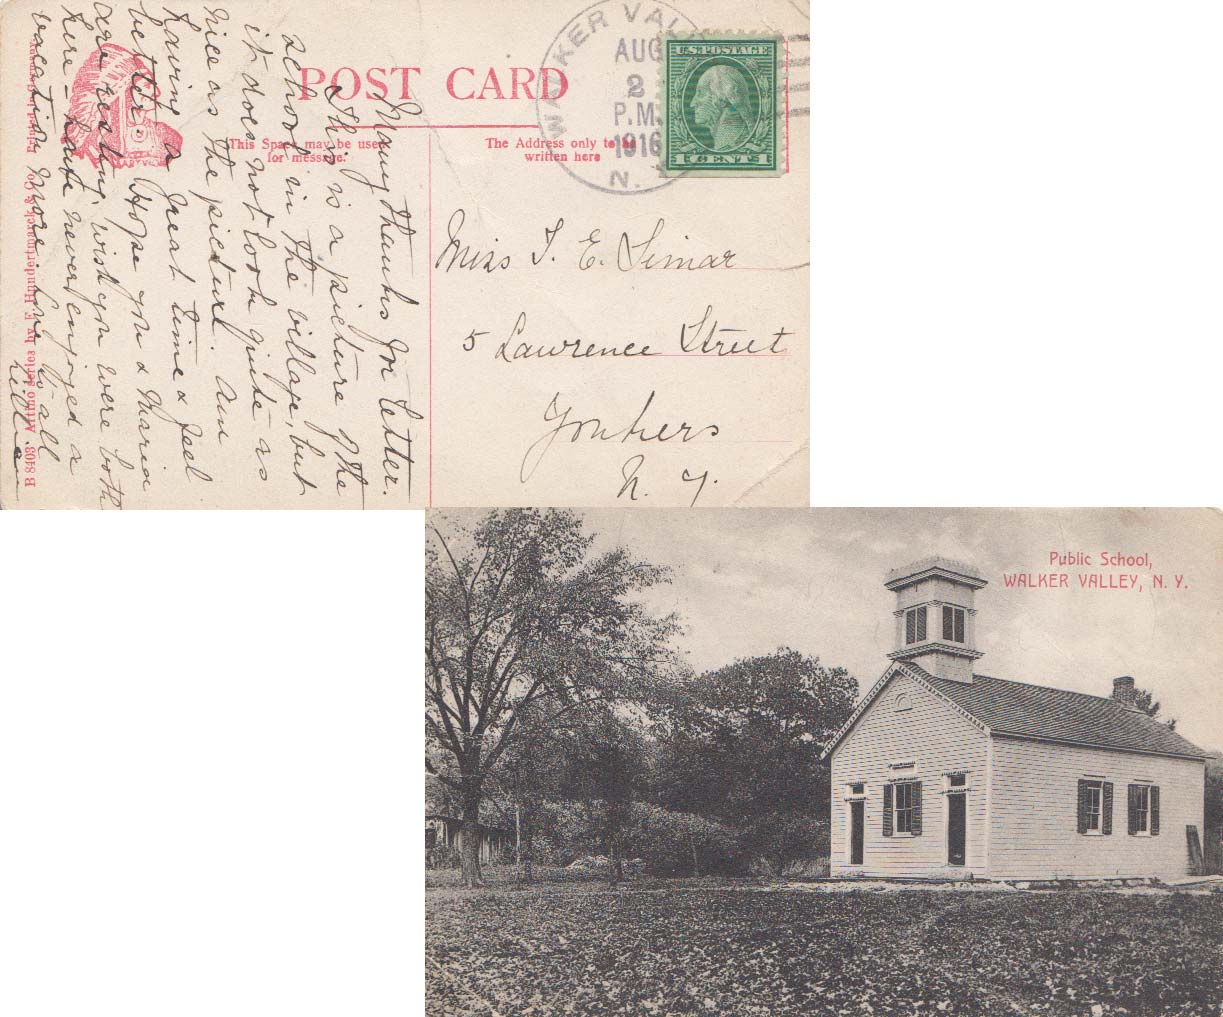 POST CARD
This Space may be used
for message.
The Address only to be
written here
WALKER VALLEY
AUG
2
P.M.
1916
N.
U.S. POSTAGE
1 CENTS 1
Many thanks for letter.
This is a picture of the
school in the village, but
it does not look quite as
nice as the picture. Am
having a great time & feel
better. Hope you & Maria
are resting, wish you were both
here – have never enjoyed a
vacation more. Love to all
Lillian
B 8403 Artino series by F. Hundertmarck & Co. Printed in Germany
Miss T. E. Simar
5 Lawrence Street
Yonkers
N. Y.
Public School,
WALKER VALLEY, N. Y.